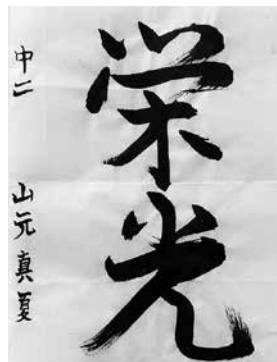 栄光
中二 山元真夏